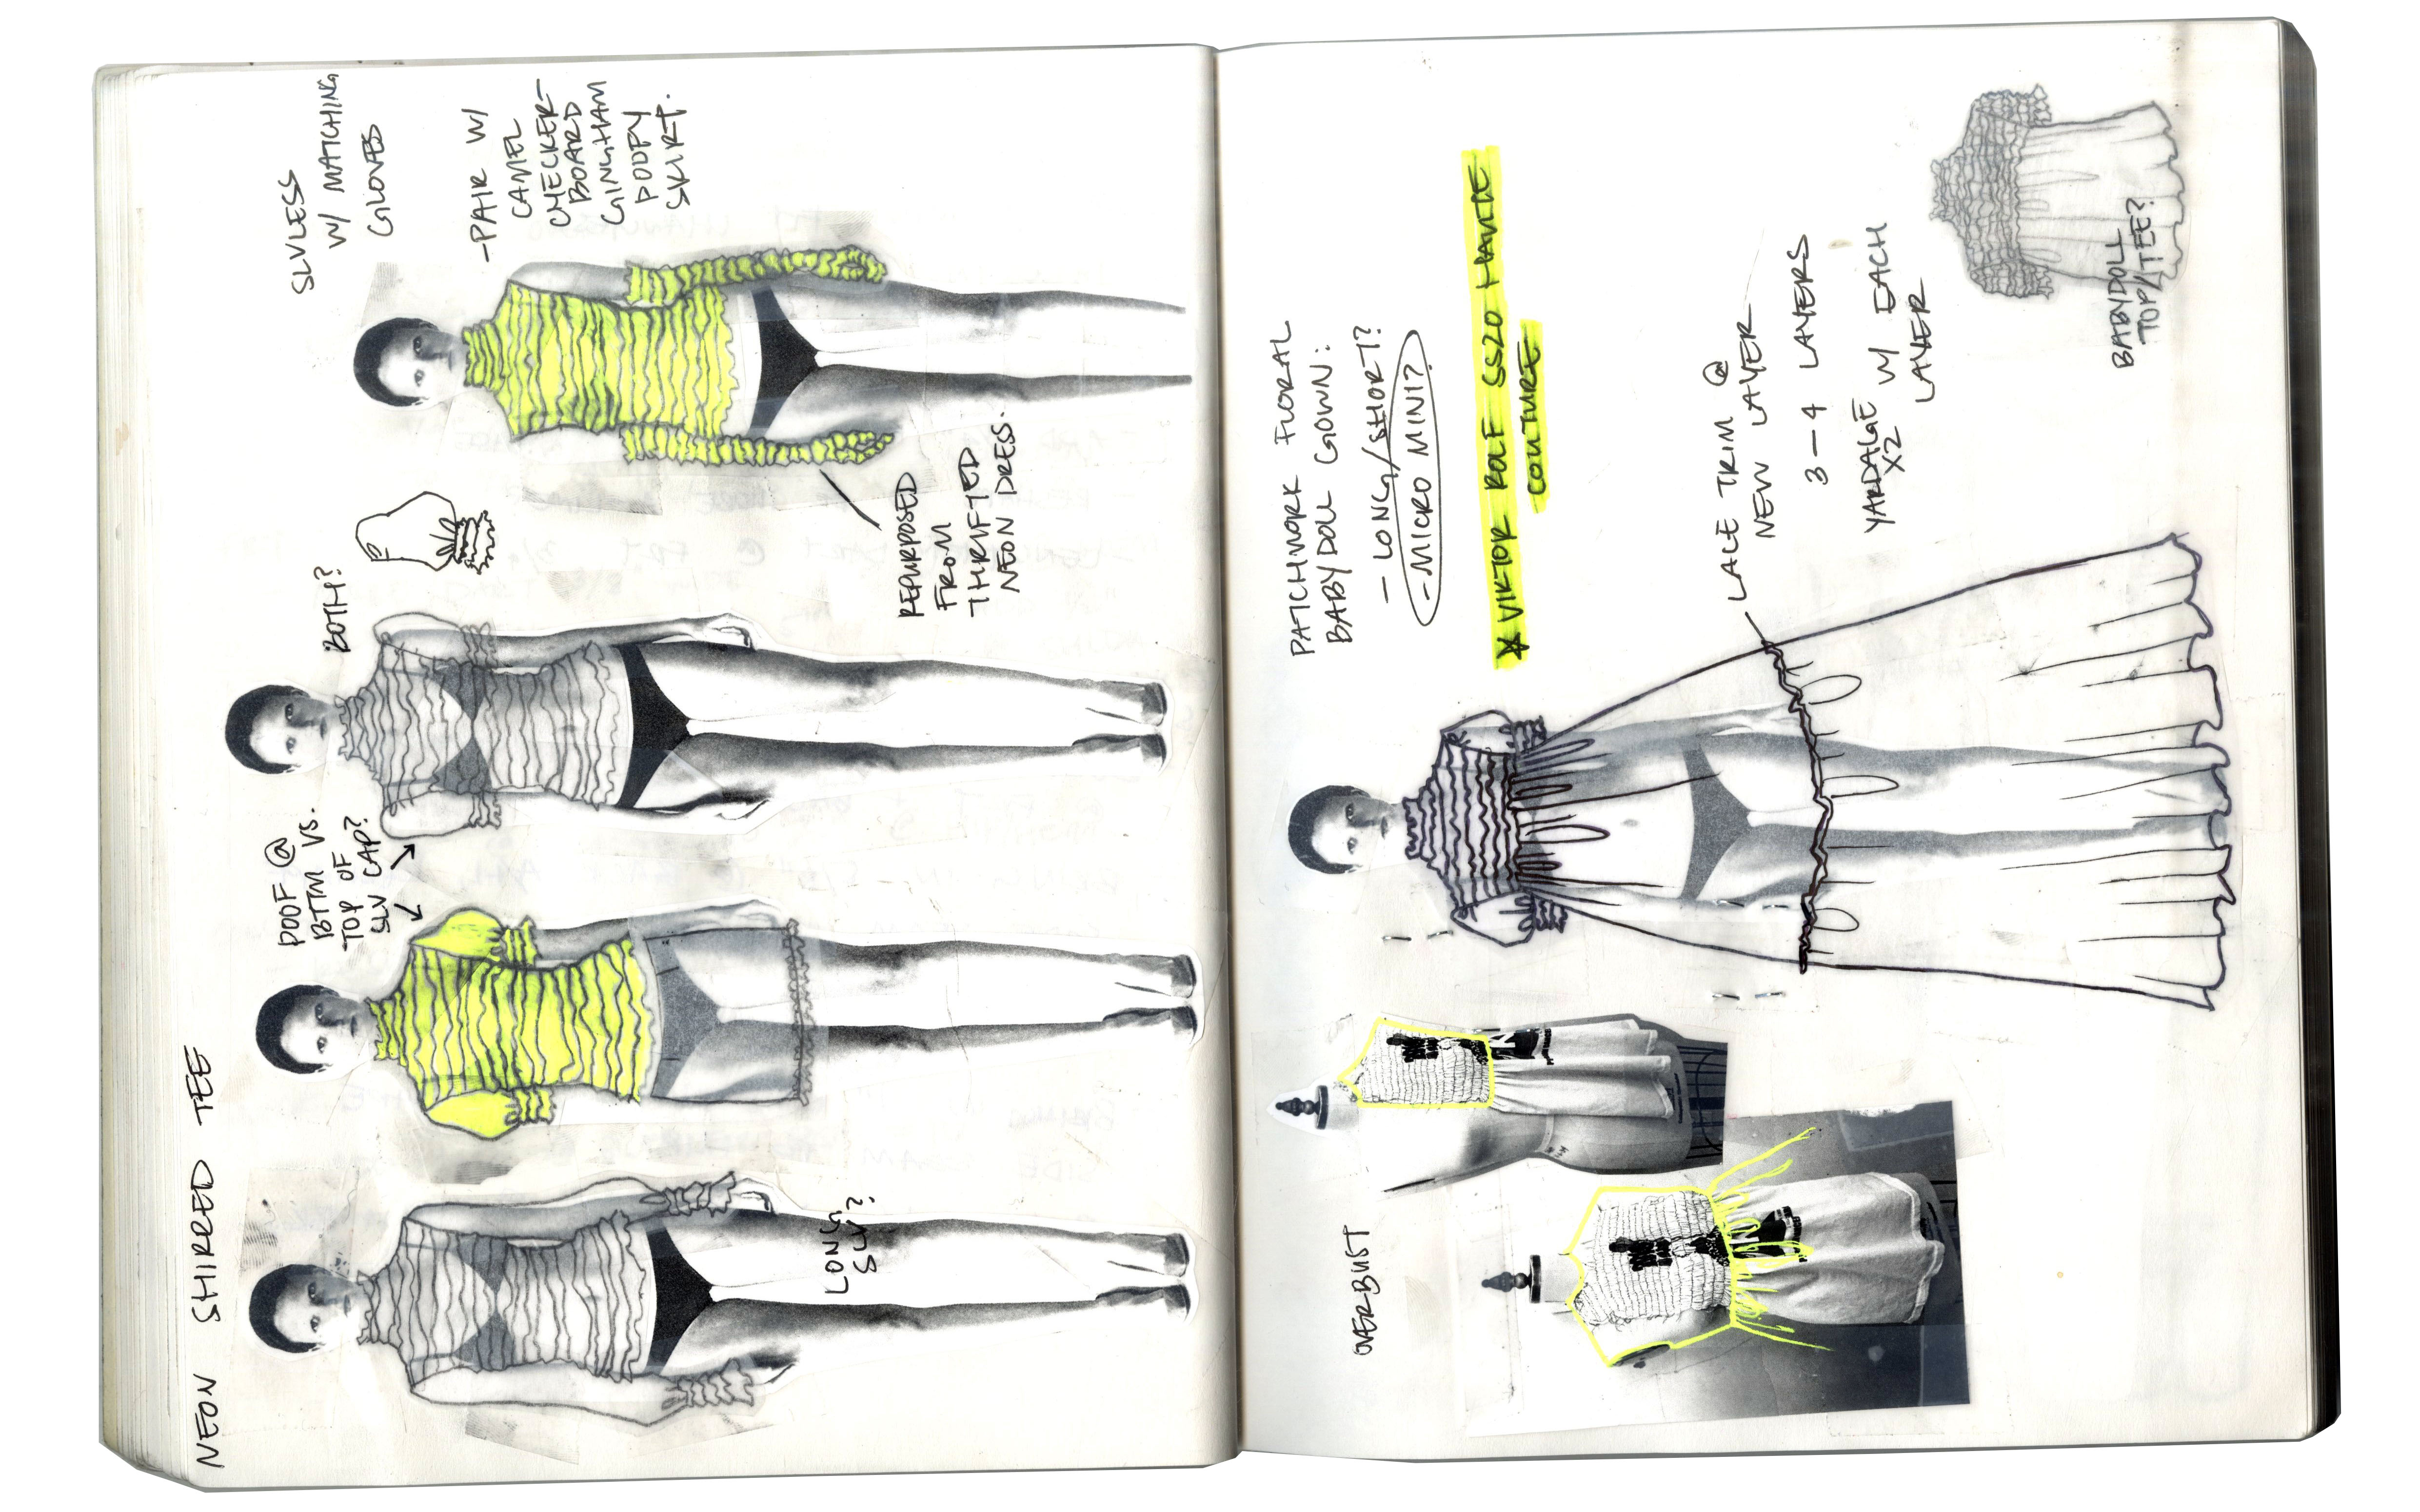 NEON SHIRED TEE
LONG
SLV?
POOF @
BTTM VS.
TOP OF
SLV CAP?
BOTH?
SLVLESS
W/ MATCHING
GLOVES
-PAIR W/
CAMEL
CHECKER-
BOARD
GINGHAM
POOFY
SKIRT.
REPURPOSED
FROM
THRIFTED
NEON DRESS.
OVERBUST
PATCHWORK FLORAL
BABYDOLL GOWN:
- LONG/SHORT?
- MICRO MINI?
* VIKTOR ROLF SS20 HAUTE
COUTURE
LACE TRIM @
NEW LAYER
3-4 LAYERS
YARDAGE W/ EACH
X2 LAYER
BABYDOLL
TOP/TEE?